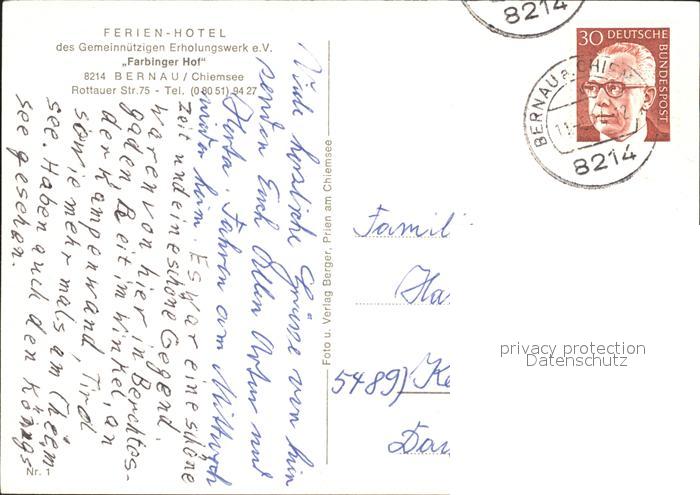 FERIEN-HOTEL
des Gemeinnützigen Erholungswerk e.V.
„Farbinger Hof"
8214 BERNAU/Chiemsee
Rottauer Str.75 - Tel. (0 80 51) 94 27
Viele herzliche Grüsse von hier
senden Euch Allen Artur und
Herta. Fahren am Mittwoch
wieder heim. Es war eine schöne
Zeit und eine schöne Gegend
waren von hier in Berchtes-
gaden, Reit im Winkel, an
der Kampenwand, Tirol
sowie mehrmals am Chiem
see. Haben auch den Königs
see gesehen.
Nr. 1
Foto u. Verlag Berger, Prien am Chiemsee
30 DEUTSCHE
BUNDESPOST
8214
BERNAU a. CHIEM
8214
Famil
Ha
5489) Ke
Dau
privacy protection
Datenschutz